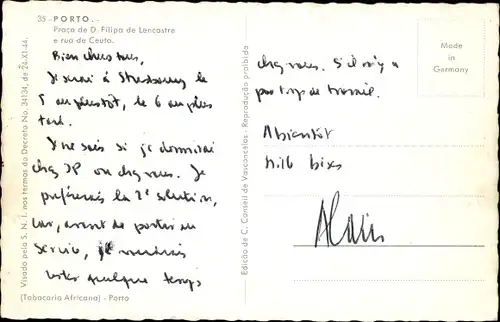 35 - PORTO. -
Praça de D. Filipa de Lencastre
e rua de Ceuta.
Bien chers tous,
Je serai à Strasbourg le
5 au plus tôt, le 6 au plus
tard.
Je ne sais si je dormirai
chez JP ou chez vous. Je
préférerais la 2e solution,
car, avant de partir en
service, je voudrais
rester quelque temps
(Tabacaria Africana) - Porto
Visado pela S. N. I. nos termos do Decreto No. 34134, de 24-XI-44.
Edição de C. Conseil de Vasconcelos - Reprodução proibida
chez vous. S'il n'y a
pas trop de travail.
A bientôt
Mille bises
Alain
Made
in
Germany